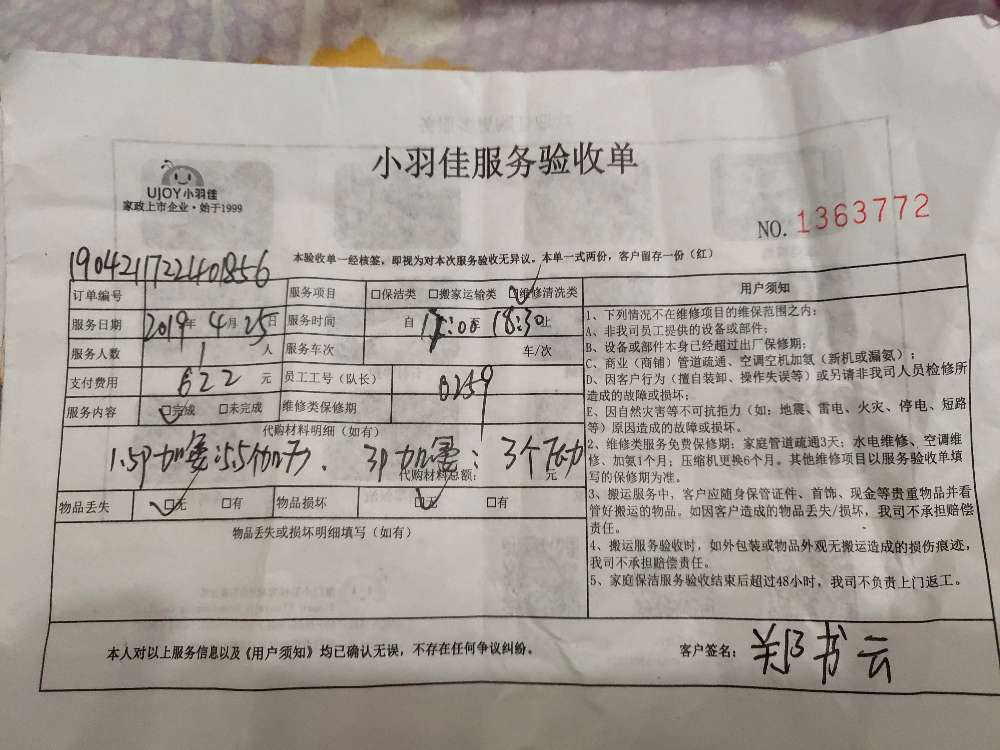 小羽佳服务验收单
UJOY小羽佳
家政上市企业·始于1999
NO.1363772
本验收单一经核签，即视为对本次服务验收无异议。本单一式两份，客户留存一份（红）
1904211722401856
订单编号
服务项目 □保洁类 □搬家运输类 □维修清洗类
服务日期 2019年4月25日
服务时间 自 :00至18:30止
服务人数 1人
服务车次 车/次
支付费用 622元
员工工号（队长） 0259
服务内容 □完成 □未完成
维修类保修期
代购材料明细（如有）
1.5P加氟:5.5个压力. 3P加氟: 3个压力
代购材料总额: 元
物品丢失 □无 □有
物品损坏 □无 □有
物品丢失或损坏明细填写（如有）
用户须知
1、下列情况不在维修项目的维保范围之内:
A、非我司员工提供的设备或部件;
B、设备或部件本身已经超过出厂保修期;
C、商业（商铺）管道疏通、空调空机加氨（新机或漏氨）;
D、因客户行为（擅自装卸、操作失误等）或另请非我司人员检修所
造成的故障或损坏;
E、因自然灾害等不可抗拒力（如: 地震、雷电、火灾、停电、短路
等）原因造成的故障或损坏。
2、维修类服务免费保修期: 家庭管道疏通3天; 水电维修、空调维
修、加氨1个月; 压缩机更换6个月。其他维修项目以服务验收单填
写的保修期为准。
3、搬运服务中，客户应随身保管证件、首饰、现金等贵重物品并看
管好搬运的物品。如因客户造成的物品丢失/损坏，我司不承担赔偿
责任。
4、搬运服务验收时，如外包装或物品外观无搬运造成的损伤痕迹，
我司不承担赔偿责任。
5、家庭保洁服务验收结束后超过48小时，我司不负责上门返工。
本人对以上服务信息以及《用户须知》均已确认无误，不存在任何争议纠纷。
客户签名: 郑书云